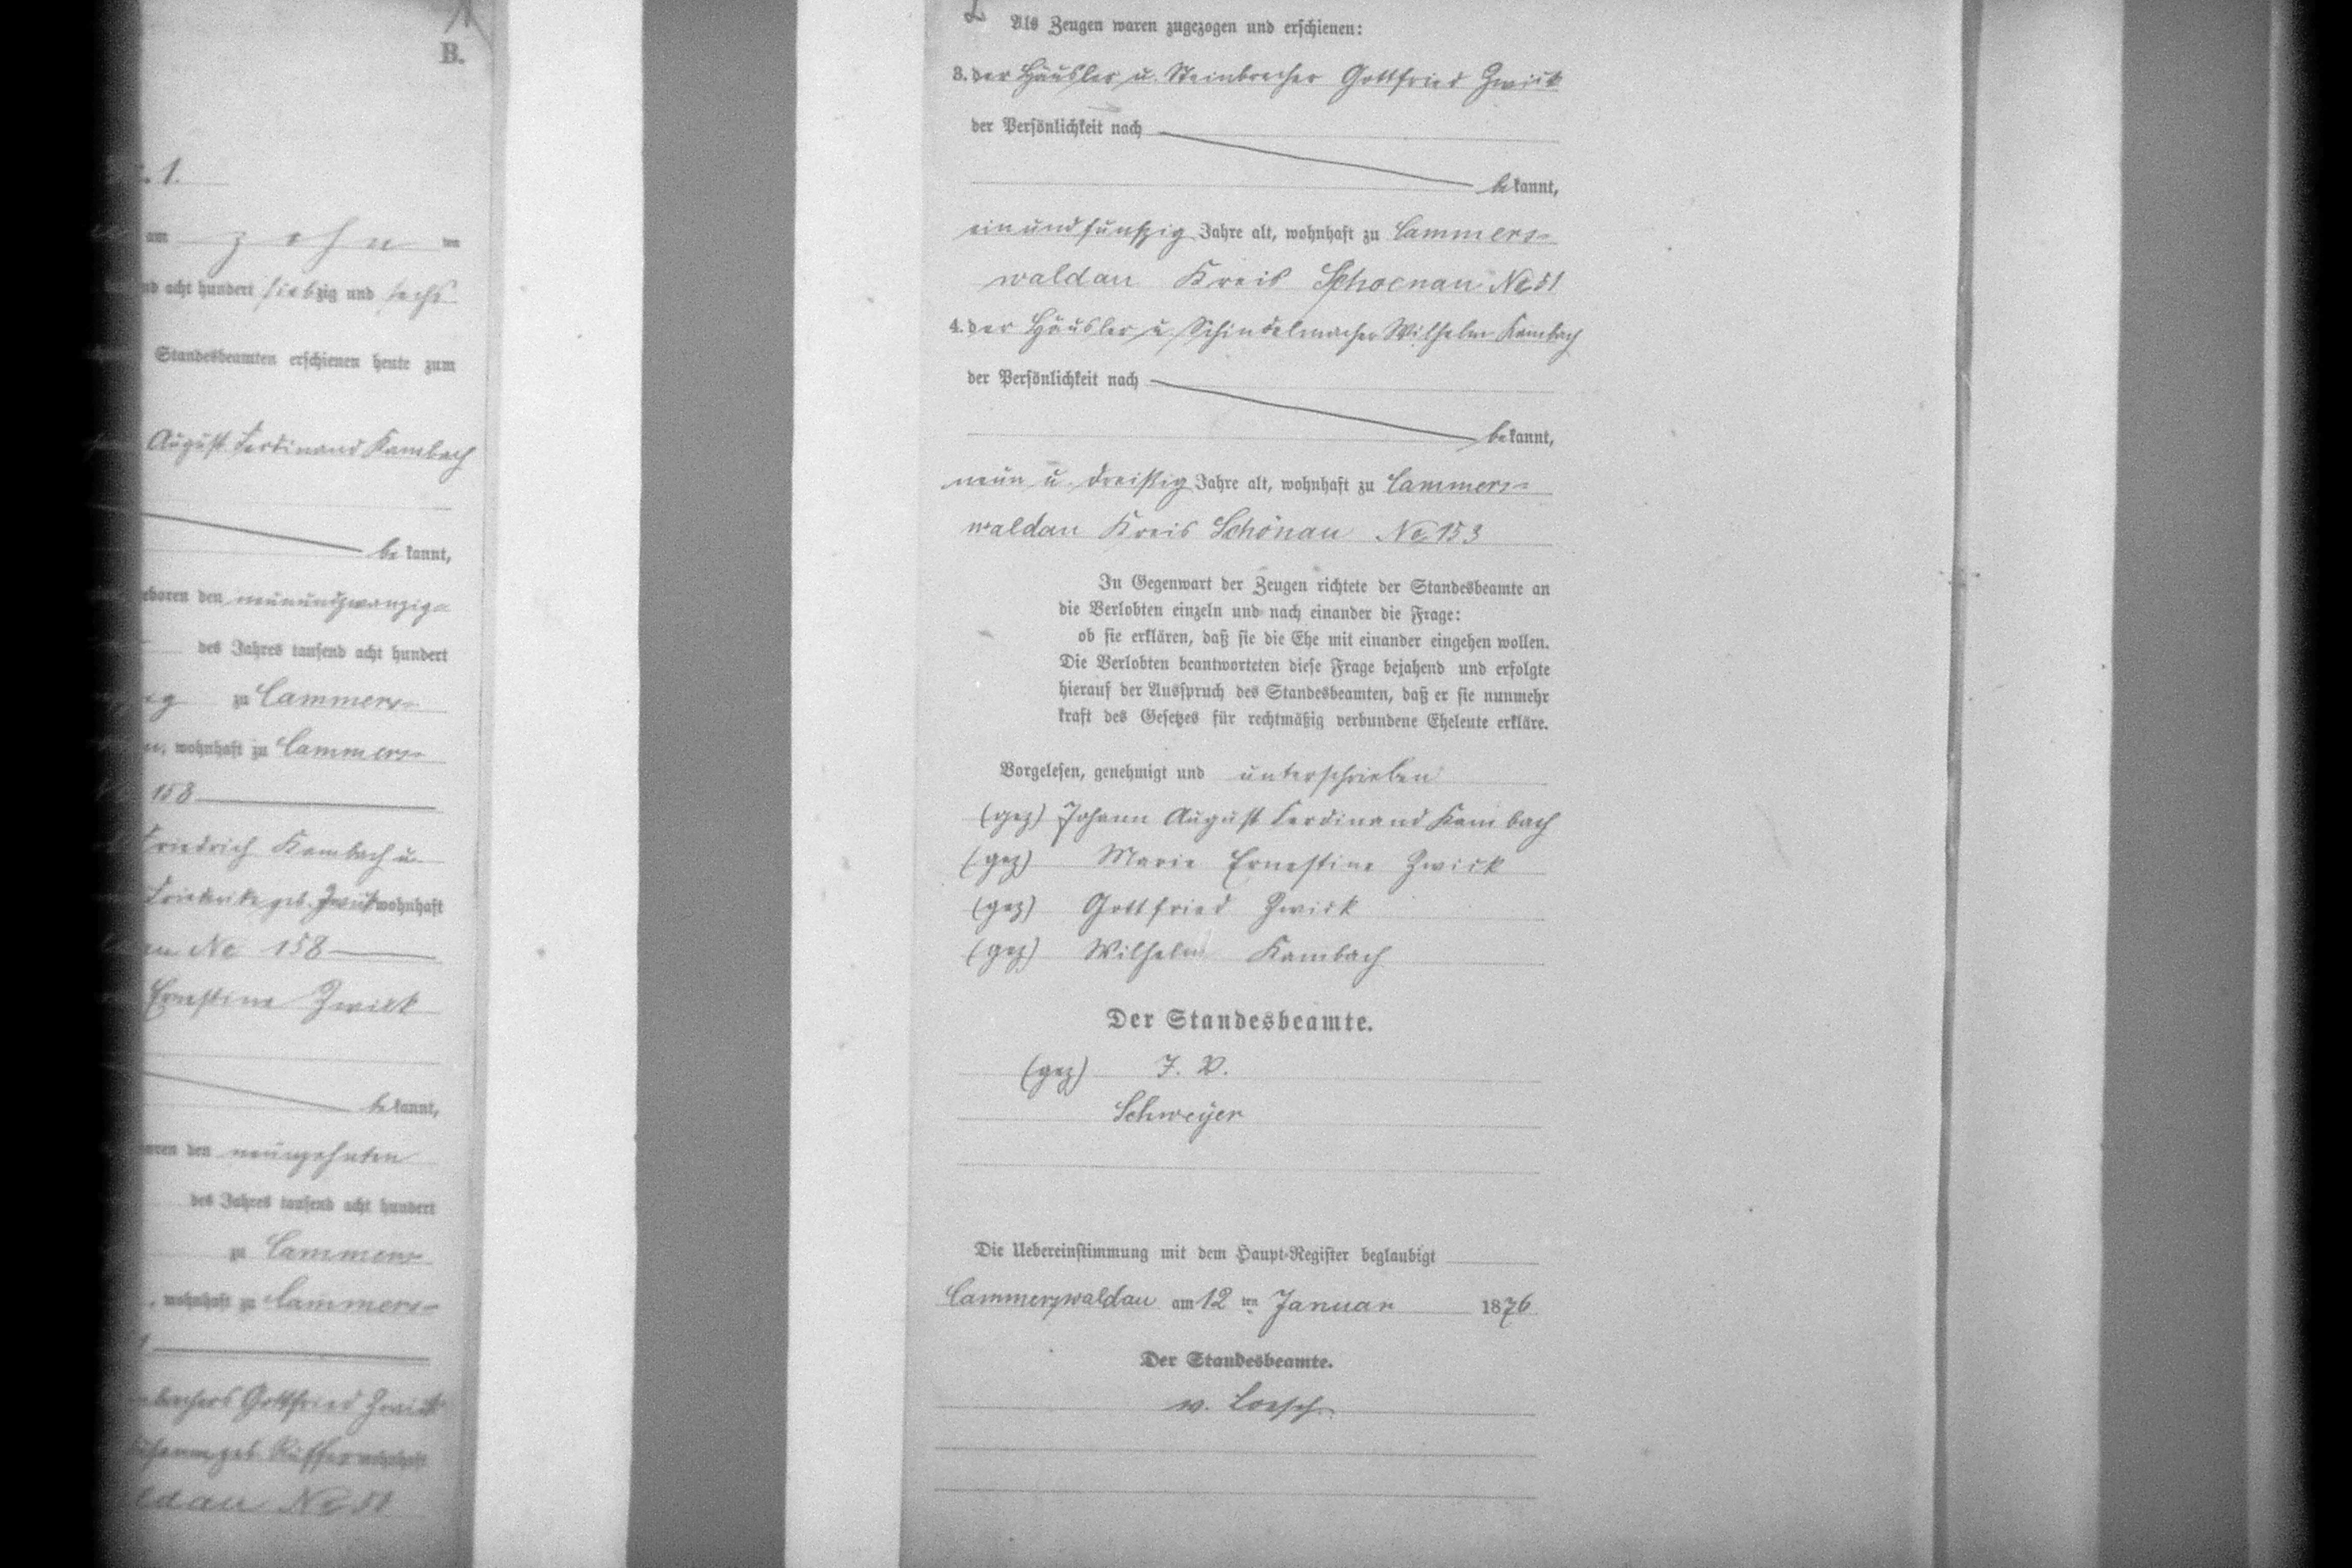 B.
1.
am zehn ten
acht hundert siebzig und sechs
Standesbeamten erschienen heute zum
August Ferdinand Kambach
be kannt,
den neunundzwanzig
des Jahres tausend acht hundert
zu Cammers-
wohnhaft zu Cammers-
158
Friedrich Kambach u.
Friederike geb. Zwick wohnhaft
No 158
Ernestine Zwick
be kannt,
den neunzehnten
des Jahres tausend acht hundert
zu Cammers-
, wohnhaft zu Cammers-
Gottfried Zwick
geb. wohnhaft
No 51
Als Zeugen waren zugezogen und erschienen:
3. der Häusler u. Steinbrecher Gottfried Zwick
der Persönlichkeit nach
be kannt,
einundfunfzig Jahre alt, wohnhaft zu Cammers-
waldau Kreis Schoenau No 51
4. der Häusler u. Schindelmacher Wilhelm Kambach
der Persönlichkeit nach
be kannt,
neun u. dreißig Jahre alt, wohnhaft zu Cammers-
waldau Kreis Schönau No 153
In Gegenwart der Zeugen richtete der Standesbeamte an
die Verlobten einzeln und nach einander die Frage:
ob sie erklären, daß sie die Ehe mit einander eingehen wollen.
Die Verlobten beantworteten diese Frage bejahend und erfolgte
hierauf der Ausspruch des Standesbeamten, daß er sie nunmehr
kraft des Gesetzes für rechtmäßig verbundene Eheleute erkläre.
Vorgelesen, genehmigt und unterschrieben
(gez) Johann August Ferdinand Kambach
(gez) Marie Ernestine Zwick
(gez) Gottfried Zwick
(gez) Wilhelm Kambach
Der Standesbeamte.
(gez) J. V.
Schweyer
Die Uebereinstimmung mit dem Haupt-Register beglaubigt
Cammerswaldau am 12 ten Januar 1876
Der Standesbeamte.
v. Loesch